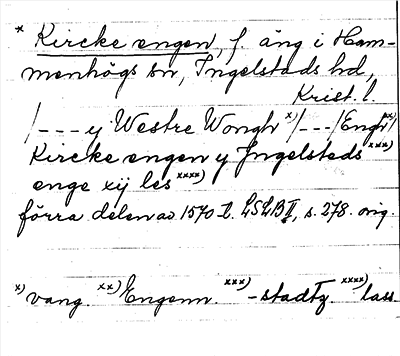 x Kircke engen, f. äng i Ham-
menhögs sn, Ingelstads hd,
Krist. l.
/--- y Westre Wongh x)/---/Engh xx)/
Kircke engen y Ingelsteds xxx)
enge xij les xxxx)
förra delen av 1570 t. LSLB II, s. 278. orig.
x) vang. xx) Engenn. xxx) -stadtz. xxxx) lass.